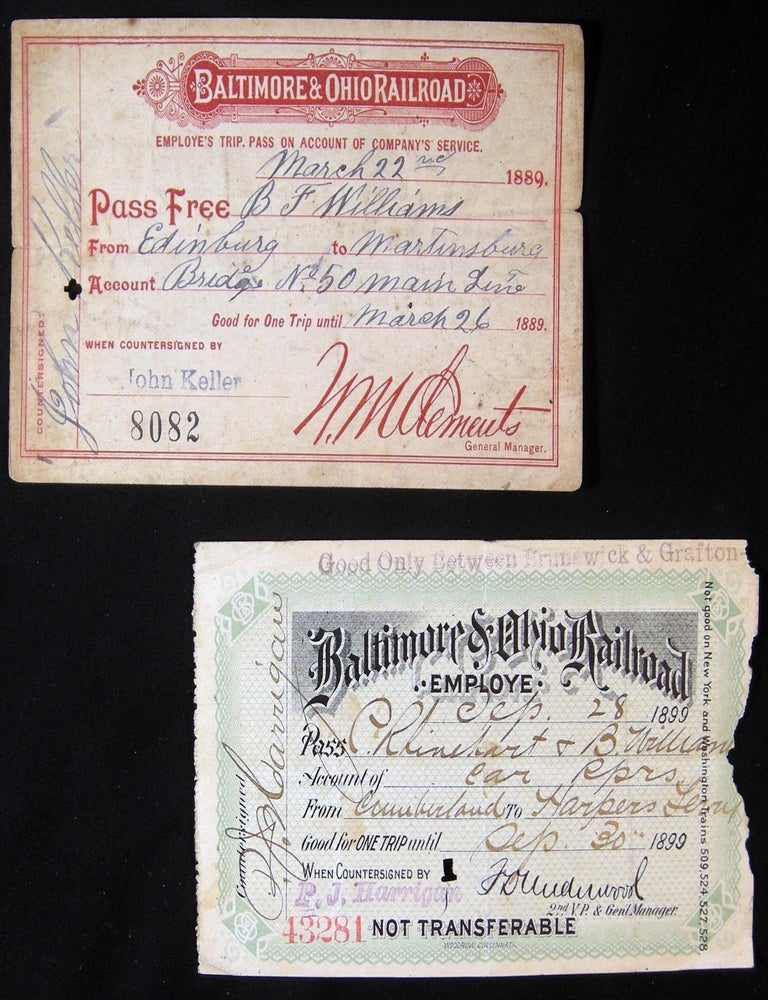 BALTIMORE & OHIO RAILROAD
EMPLOYE'S TRIP PASS ON ACCOUNT OF COMPANY'S SERVICE.
March 22nd 1889.
Pass Free B F Williams
From Edinburg to Martinsburg
Account Bridge No 50 main Line
Good for One Trip until March 26 1889.
WHEN COUNTERSIGNED BY
John Keller
8082
W.M. Clements
General Manager.
COUNTERSIGNED:
John Keller
Good Only Between Brunswick & Grafton
Baltimore & Ohio Railroad
EMPLOYE
Sep. 28 1899
Pass C. Rhinehart & B. William
Account of car rprs
From Cumberland To Harpers Ferry
Good for ONE TRIP until Sep. 30" 1899
WHEN COUNTERSIGNED BY
P. J. Harrigan
F D Underwood
2nd V.P. & Genl. Manager.
43281 NOT TRANSFERABLE
WOODROW, CINCINNATI.
Countersigned
P. J. Harrigan
Not good on New York and Washington Trains 509, 524, 527, 528.